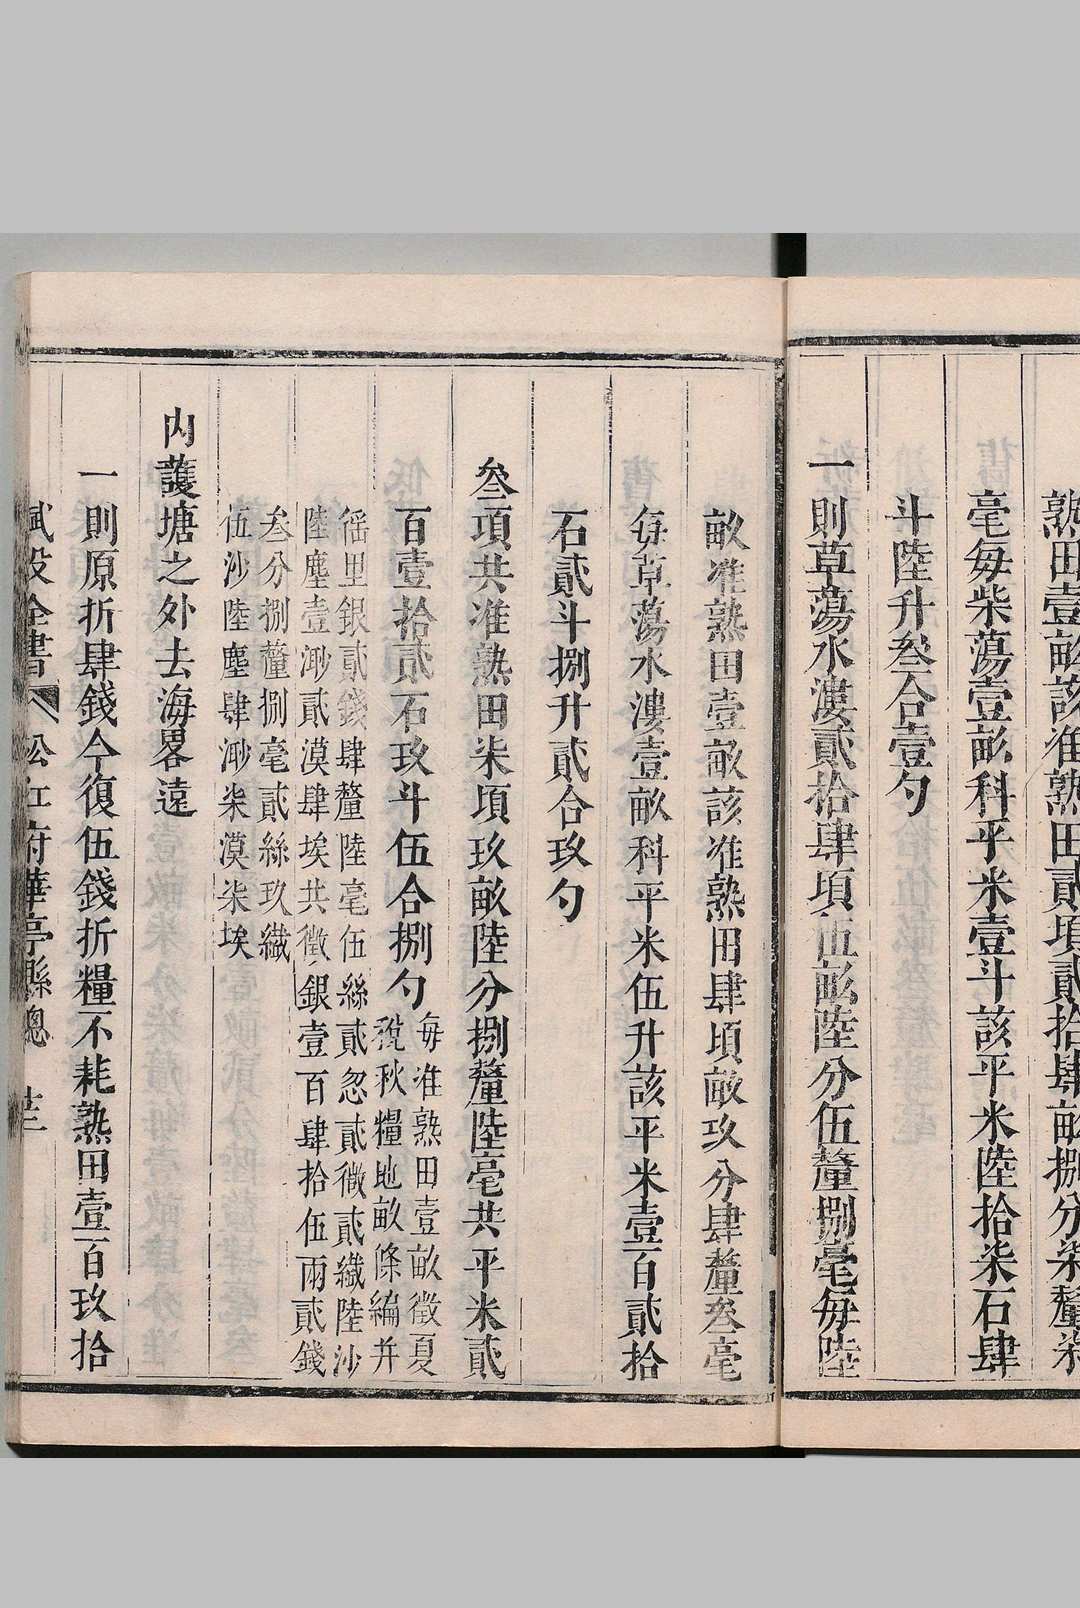 熟田壹畝該准熟田貳項貳拾肆畝捌分柒釐柒
毫每柴蕩壹畝科平米壹斗該平米陸拾柒石肆
斗陸升叄合壹勺
一則草蕩水漊貳拾肆項伍畝陸分伍釐捌毫每陸
畝准熟田壹畝該准熟田肆項畝玖分肆釐叄毫
每草蕩水漊壹畝科平米伍升該平米壹百貳拾
石貳斗捌升貳合玖勺
叄項共准熟田柒項玖畝陸分捌釐陸毫共平米貳
百壹拾貳石玖斗伍合捌勺
每准熟田壹畝徵夏
稅秋糧地畝條編并
徭里銀貳錢肆釐陸毫伍絲貳忽貳微貳纖陸沙
陸塵壹渺貳漠肆埃共徵銀壹百肆拾伍兩貳錢
叄分捌釐捌毫貳絲玖纖
伍沙陸塵肆渺柒漠柒埃
內護塘之外去海畧遠
一則原折肆錢今復伍錢折糧不耗熟田壹百玖拾
賦役全書 松江府華亭縣總 廿三